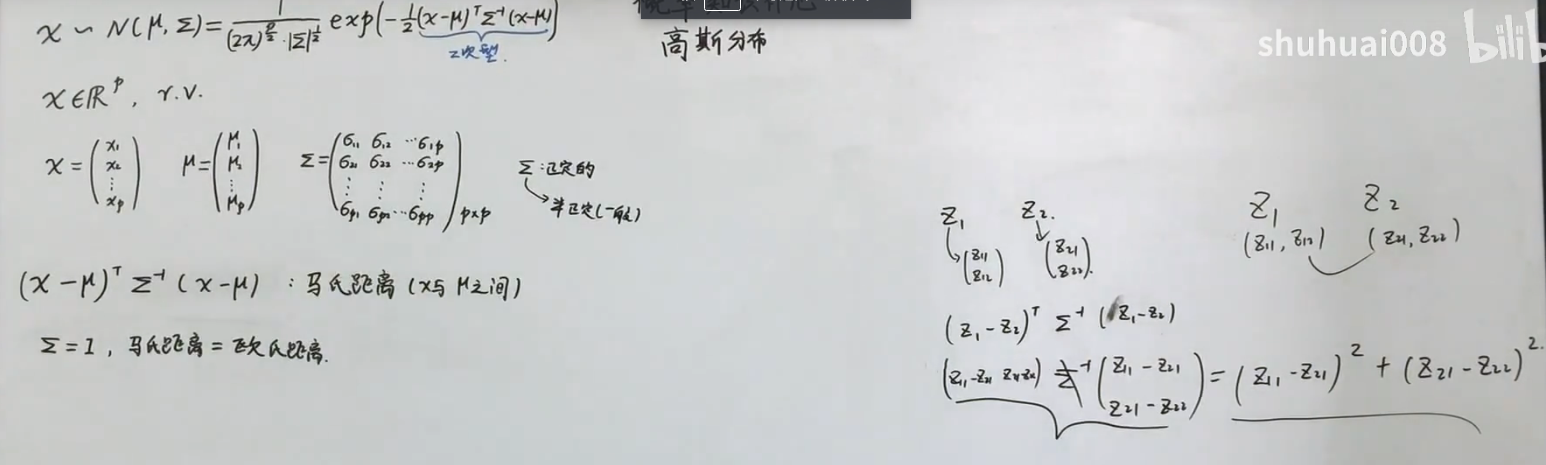 x ~ N(μ, Σ) = 1/((2π)^{p/2}·|Σ|^{1/2}) exp(-1/2 (x-μ)^T Σ^{-1} (x-μ))
二次型.
高斯分布
shuhuai008 bilib
x ∈ ℝ^p, r.v.
x = (x₁ x₂ ⋮ x_p) μ = (μ₁ μ₂ ⋮ μ_p) Σ = (σ₁₁ σ₁₂ ⋯σ₁p σ₂₁ σ₂₂ ⋯σ₂p ⋮ ⋮ ⋮ σp₁ σp₂ ⋯σpp) p×p
Σ:正定的
半正定(一般)
(x-μ)^T Σ^{-1} (x-μ) : 马氏距离 (x与μ之间)
Σ = I, 马氏距离 = 欧氏距离.
Z₁ Z₂.
(z₁₁ z₁₂) (z₂₁ z₂₂).
(z₁-z₂)^T Σ^{-1} (z₁-z₂)
Σ^{-1} (z₁₁-z₂₁ z₂₁-z₂₂) = (z₁₁-z₂₁)² + (z₂₁-z₂₂)².
Z₁ Z₂
(z₁₁, z₁₂) (z₂₁, z₂₂)